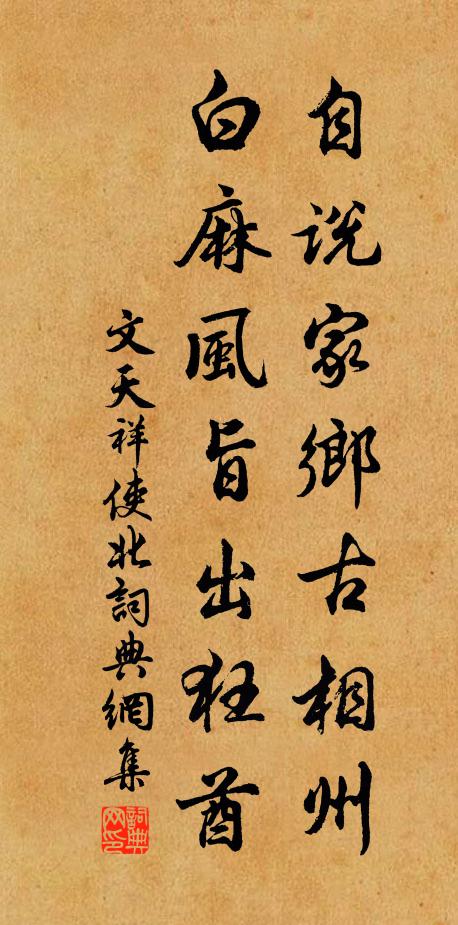 自説家鄉古相州
白麻風旨出狂酋
文天祥使北詞典網集
詞典网印